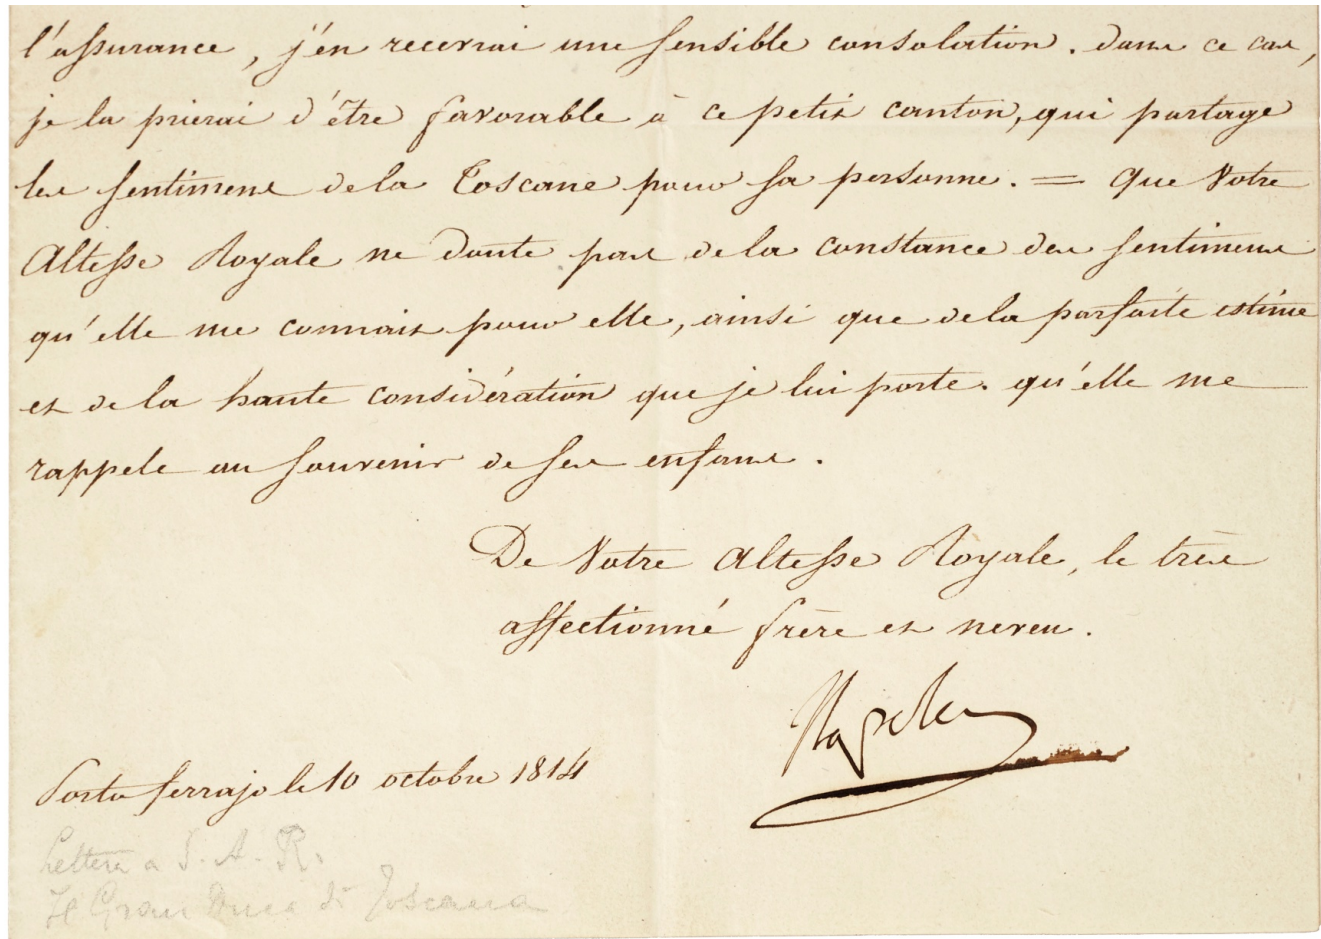 l'assurance, j'en recevrai une sensible consolation. dans ce cas,
je la prierai d'être favorable à ce petit canton, qui partage
les sentimens de la Toscane pour sa personne. = Que Votre
Altesse Royale ne doute pas de la constance des sentimens
qu'elle me connait pour elle, ainsi que de la parfaite estime
et de la haute considération que je lui porte. qu'elle me
rappele au souvenir de ses enfans.
De Votre Altesse Royale, le très
affectionné frère et neveu.
Napoleon
Porto ferrajo le 10 octobre 1814
Lettera a S. A. R.
Il Gran Duca di Toscana